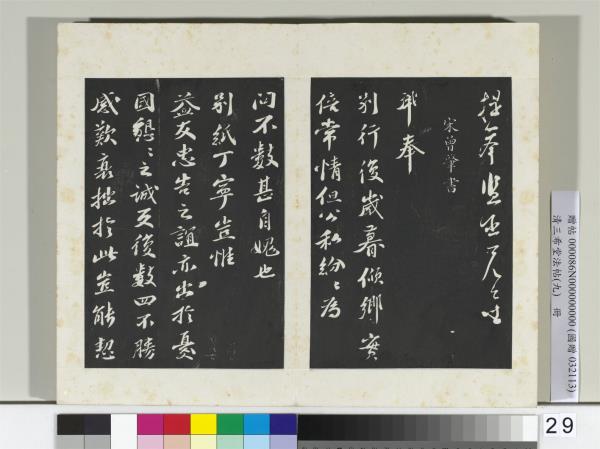 提舉監丞兄台坐
宋曾肇書
肇奉
別行後歲暮傾鄉實
倍常情但公私紛〻為
問不數甚自愧也
別紙丁寧豈惟
益友忠告之誼亦出於憂
國懇〻之誠反復數四不勝
感歎衰拙於此豈能恝
贈帖 000086N000000000 (國贈 032113)
清三希堂法帖(九) 冊
29